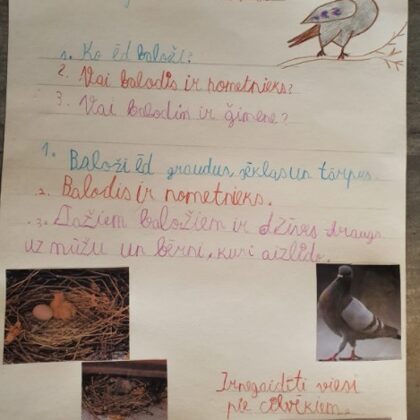 1. Ko ēd baloži?
2. Vai balodis ir nometnieks?
3. Vai balodim ir ģimene?
1. Baloži ēd graudus, sēklas un tārpus.
2. Balodis ir nometnieks.
3. Dažiem baložiem ir dzīves draugs
uz mūžu un bērni, kuri aizlido.
Irnegaidīti viesi
pie cilvēkiem.